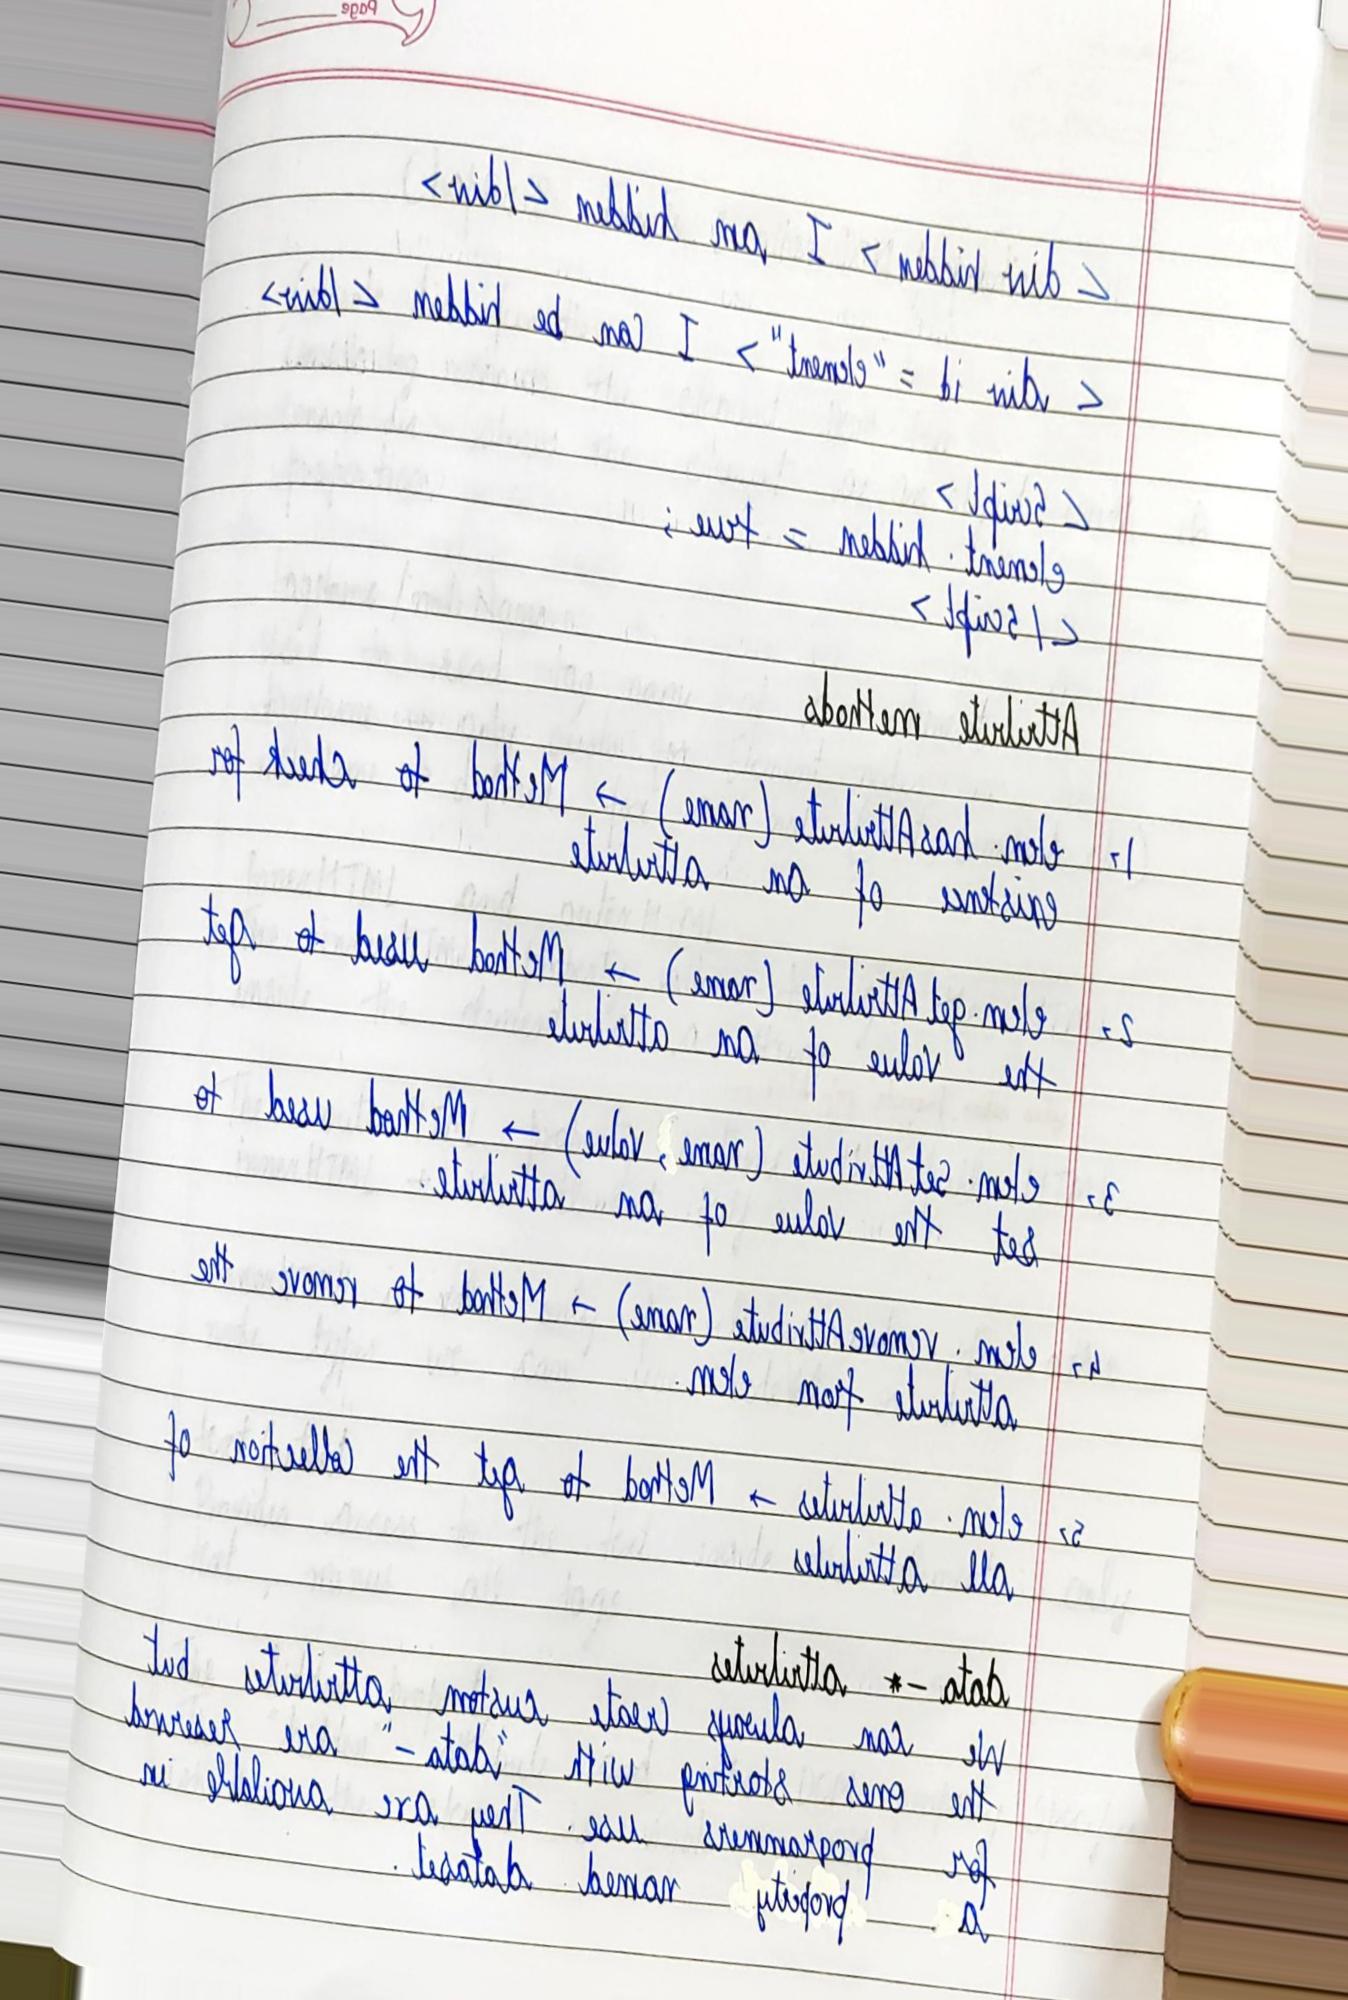 Page
< div hidden > I am hidden < /div>
< div id = "element" > I can be hidden < /div>
< Script >
element . hidden = true ;
< / Script >
Attribute methods
1, elem. hasAttribute (name) → Method to check for
existence of an attribute
2, elem. get Attribute (name) → Method used to get
the value of an attribute
3, elem. SetAttribute (name, value) → Method used to
set the value of an attribute.
4, elem. removeAttribute (name) → Method to remove the
attribute from elem.
5, elem. attributes → Method to get the Collection of
all attributes
data -* attributes
We can always create custom attributes but
the ones starting with "data-" are reserved
for programmers use. They are available in
a property named dataset.